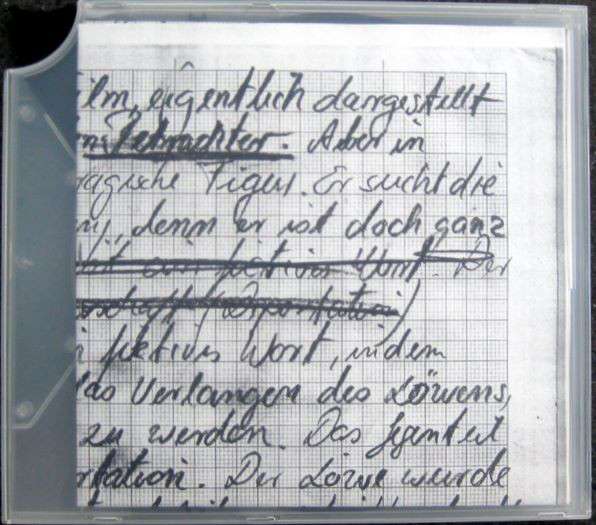 ilm, eigentlich dargestellt
Betrachter. Aber in
ragische Figur. Er sucht die
denn er ist doch ganz
ein fiktives Wort. Der
schaft (Deportation)
fiktives Wort, in dem
das Verlangen des Löwens,
zu werden. Das Gegenteil
rtation. Der Löwe wurde